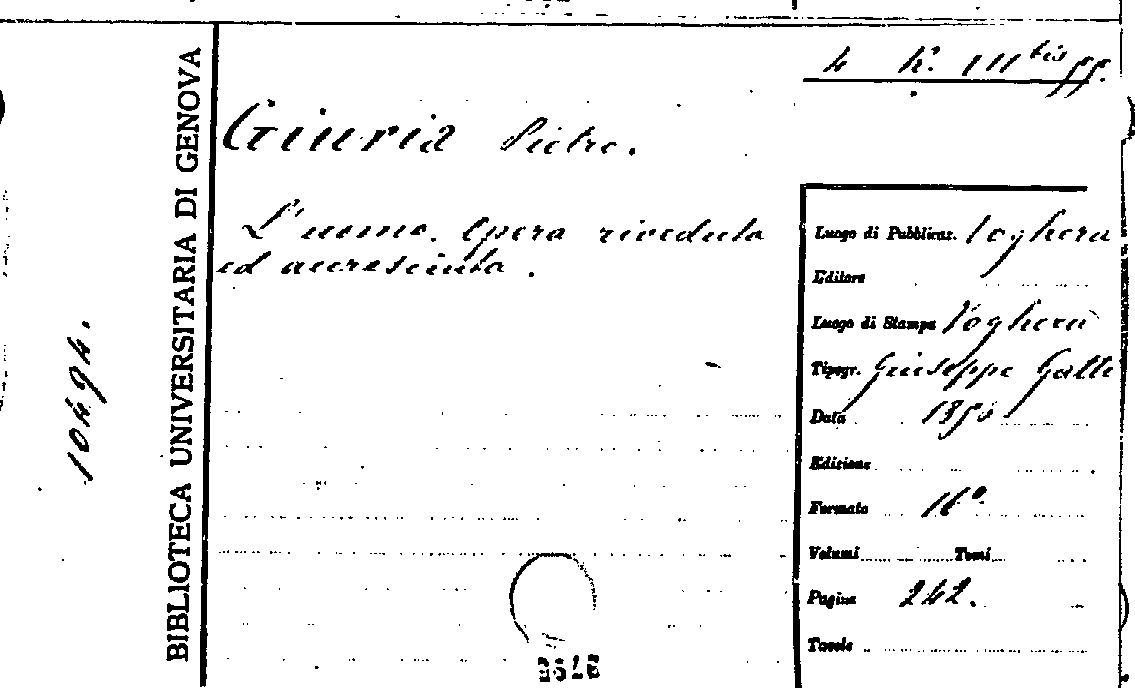 4 K. III bis 55.
BIBLIOTECA UNIVERSITARIA DI GENOVA
10494.
Giuria Pietro.
L'uomo. Opera riveduta
ed accresciuta.
Luogo di Pubblicaz. Voghera
Editore
Luogo di Stampa Voghera
Tipogr. Giuseppe Gatti
Data
Edizione
Formato 16°
Volumi Tomi
Pagine 242.
Tavole